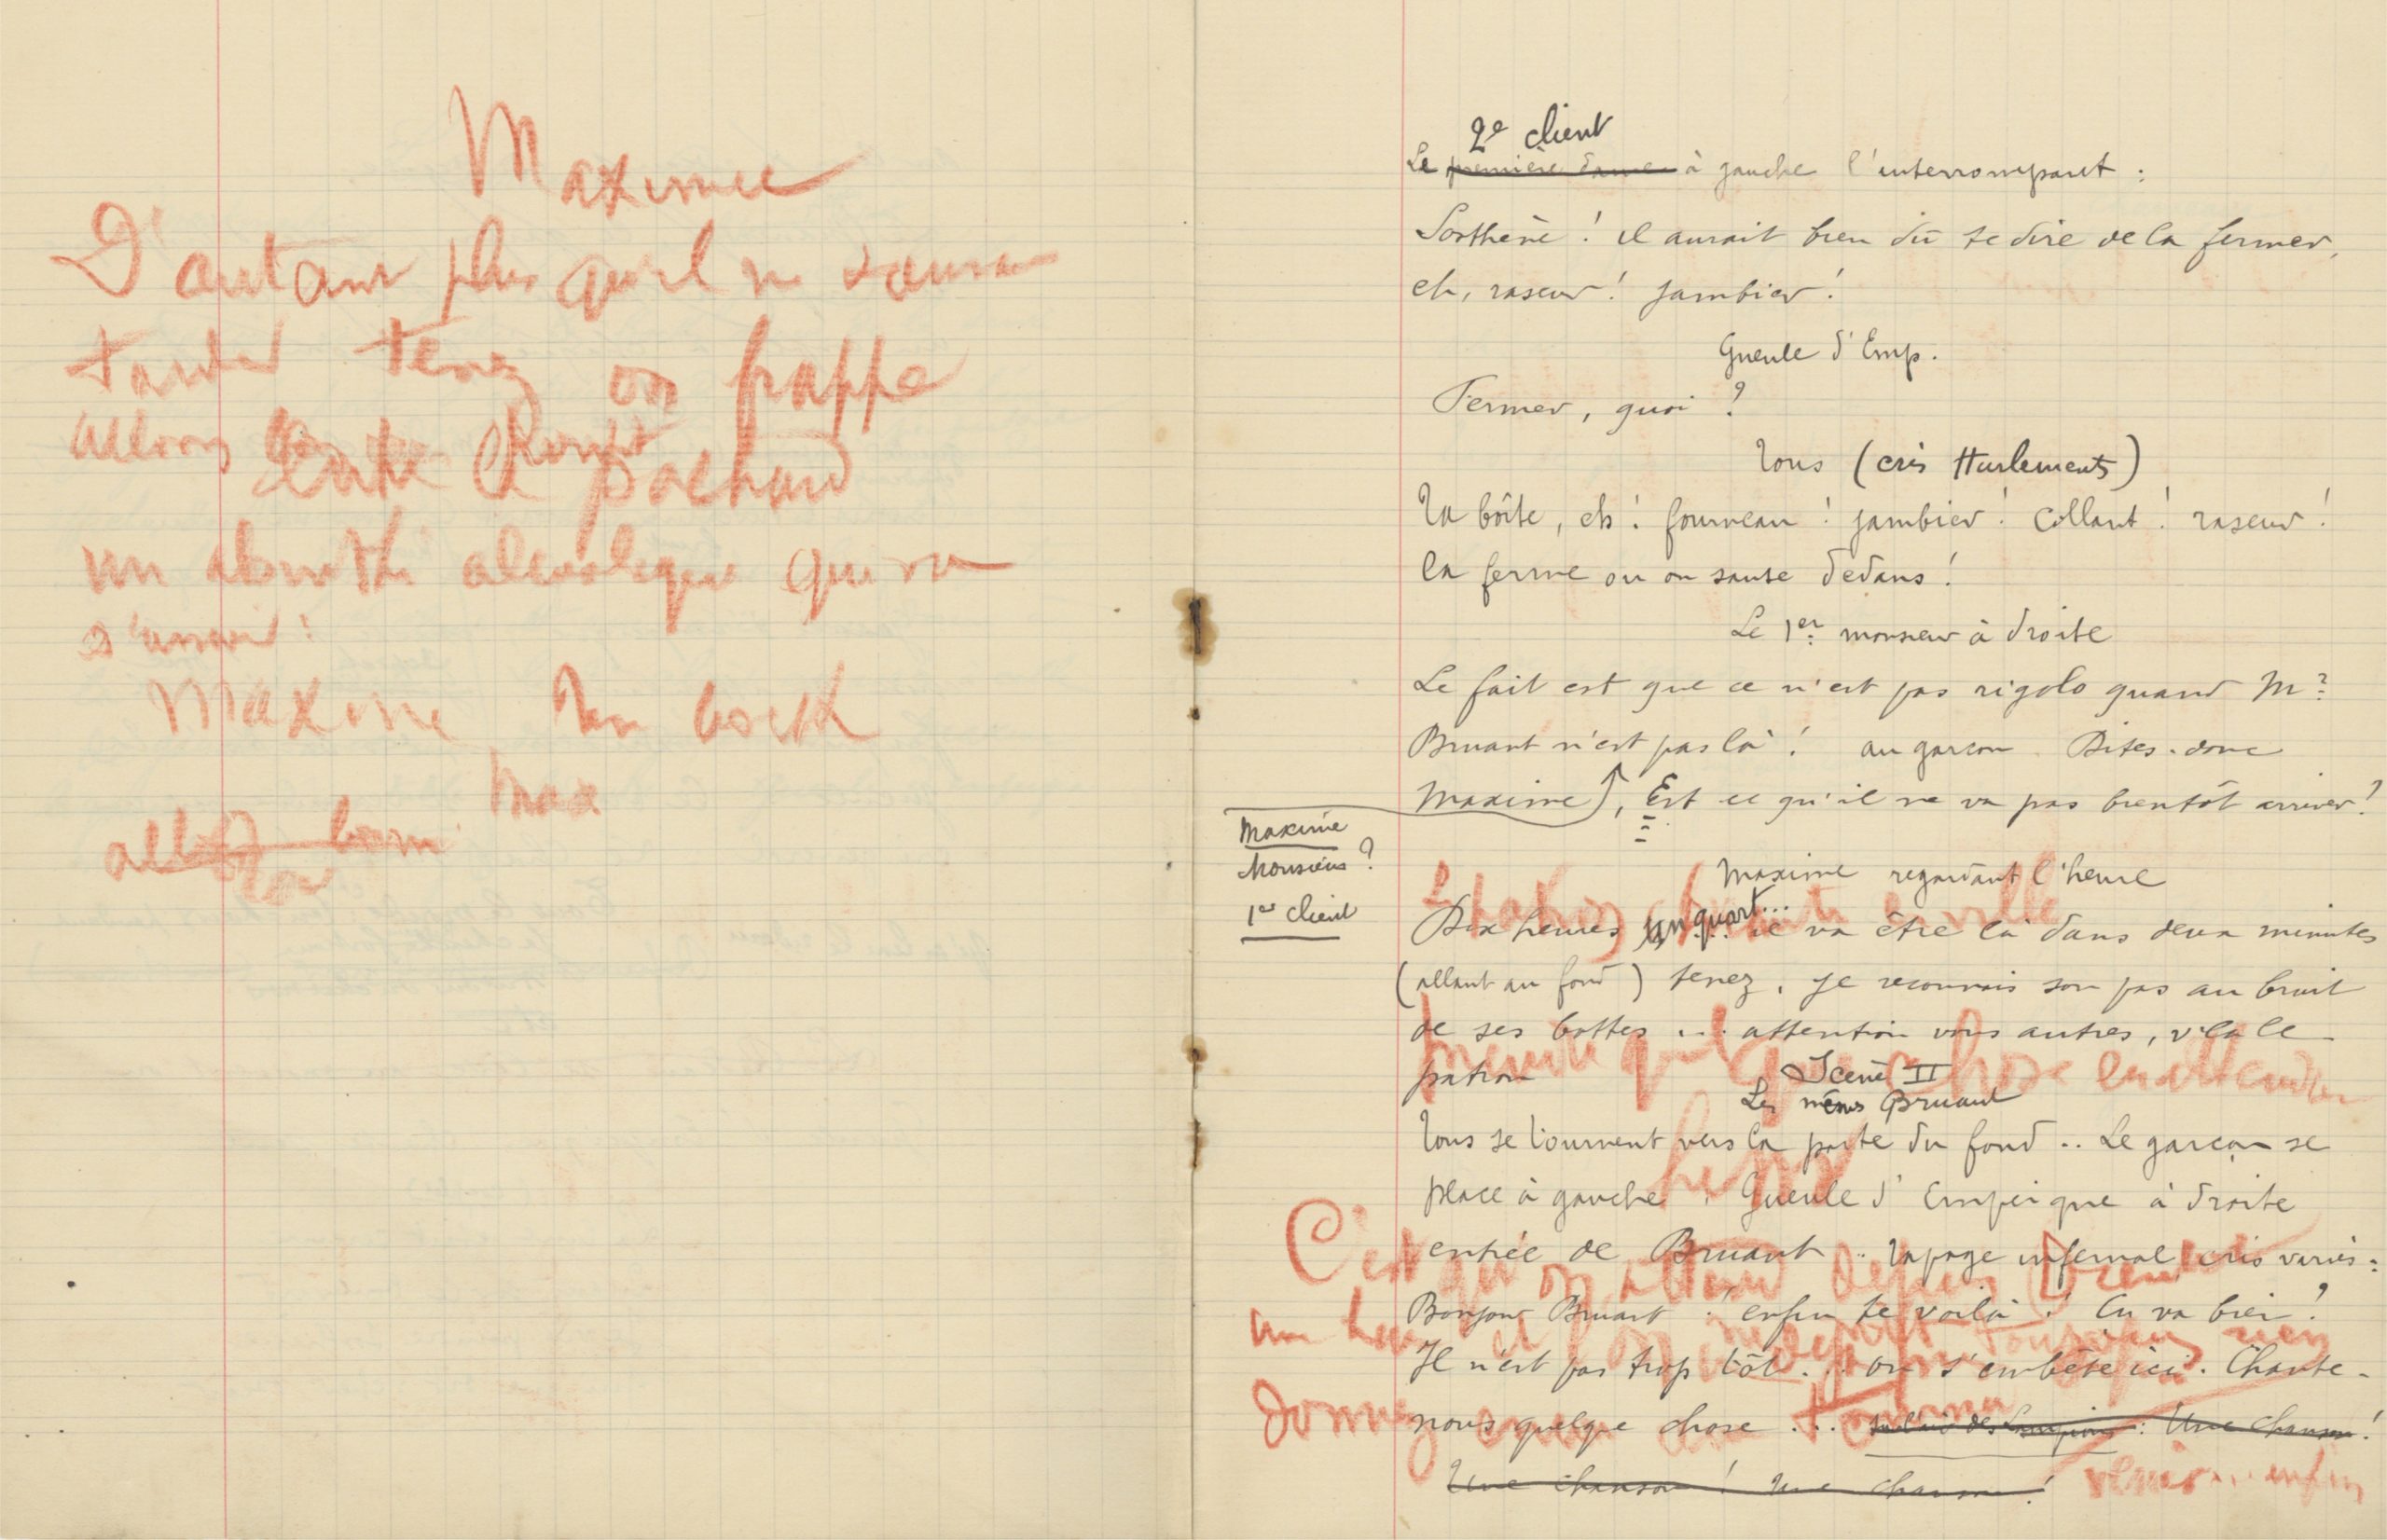 Maxime
D'autant plus qu'il ne saura
tarder tenez on frappe
allons
pochard
un absinthe alcoolique qui va
s'asseoir !
Maxime Un bock
Max
allons bon
2e client
Le première dame à gauche l'interrompant :
Sosthène ! il aurait bien dû te dire de la fermer,
eh, raseur ! jambier !
Gueule d'Emp.
Fermer, quoi ?
Tous (cris Hurlements)
Ta boîte, eh ! fourneau ! jambier ! Collant ! raseur !
la ferme ou on saute dedans !
Le 1er monsieur à droite
Le fait est que ce n'est pas rigolo quand Mr
Bruant n'est pas là ! au garçon . Dites-donc
Maxime, Est ce qu'il ne va pas bientôt arriver ?
Maxime
Monsieur ?
1er client
Maxime regardant l'heure
Le patron
en ville
Dix heures un quart... il va être là dans deux minutes
(allant au fond) tenez, je reconnais son pas au bruit
de ses bottes ... attention vous autres, v'là le
patron
prendre quelque chose en attendant
Scène II
Les mêmes Bruant
Tous se tournent vers la porte du fond .. Le garçon se
place à gauche, Gueule d'Empeigne à droite
entrée de Bruant .. tapage infernal cris variés :
C'est qu'on attend depuis
Bonjour Bruant ! enfin te voilà ! Ca va bien ?
toujours rien
Il n'est pas trop tôt ... on s'embête ici. Chante-
nous quelque chose ... sur l'air des Lampions : Une chanson !
donnez
Une chanson ! une chanson !
venir ... enfin